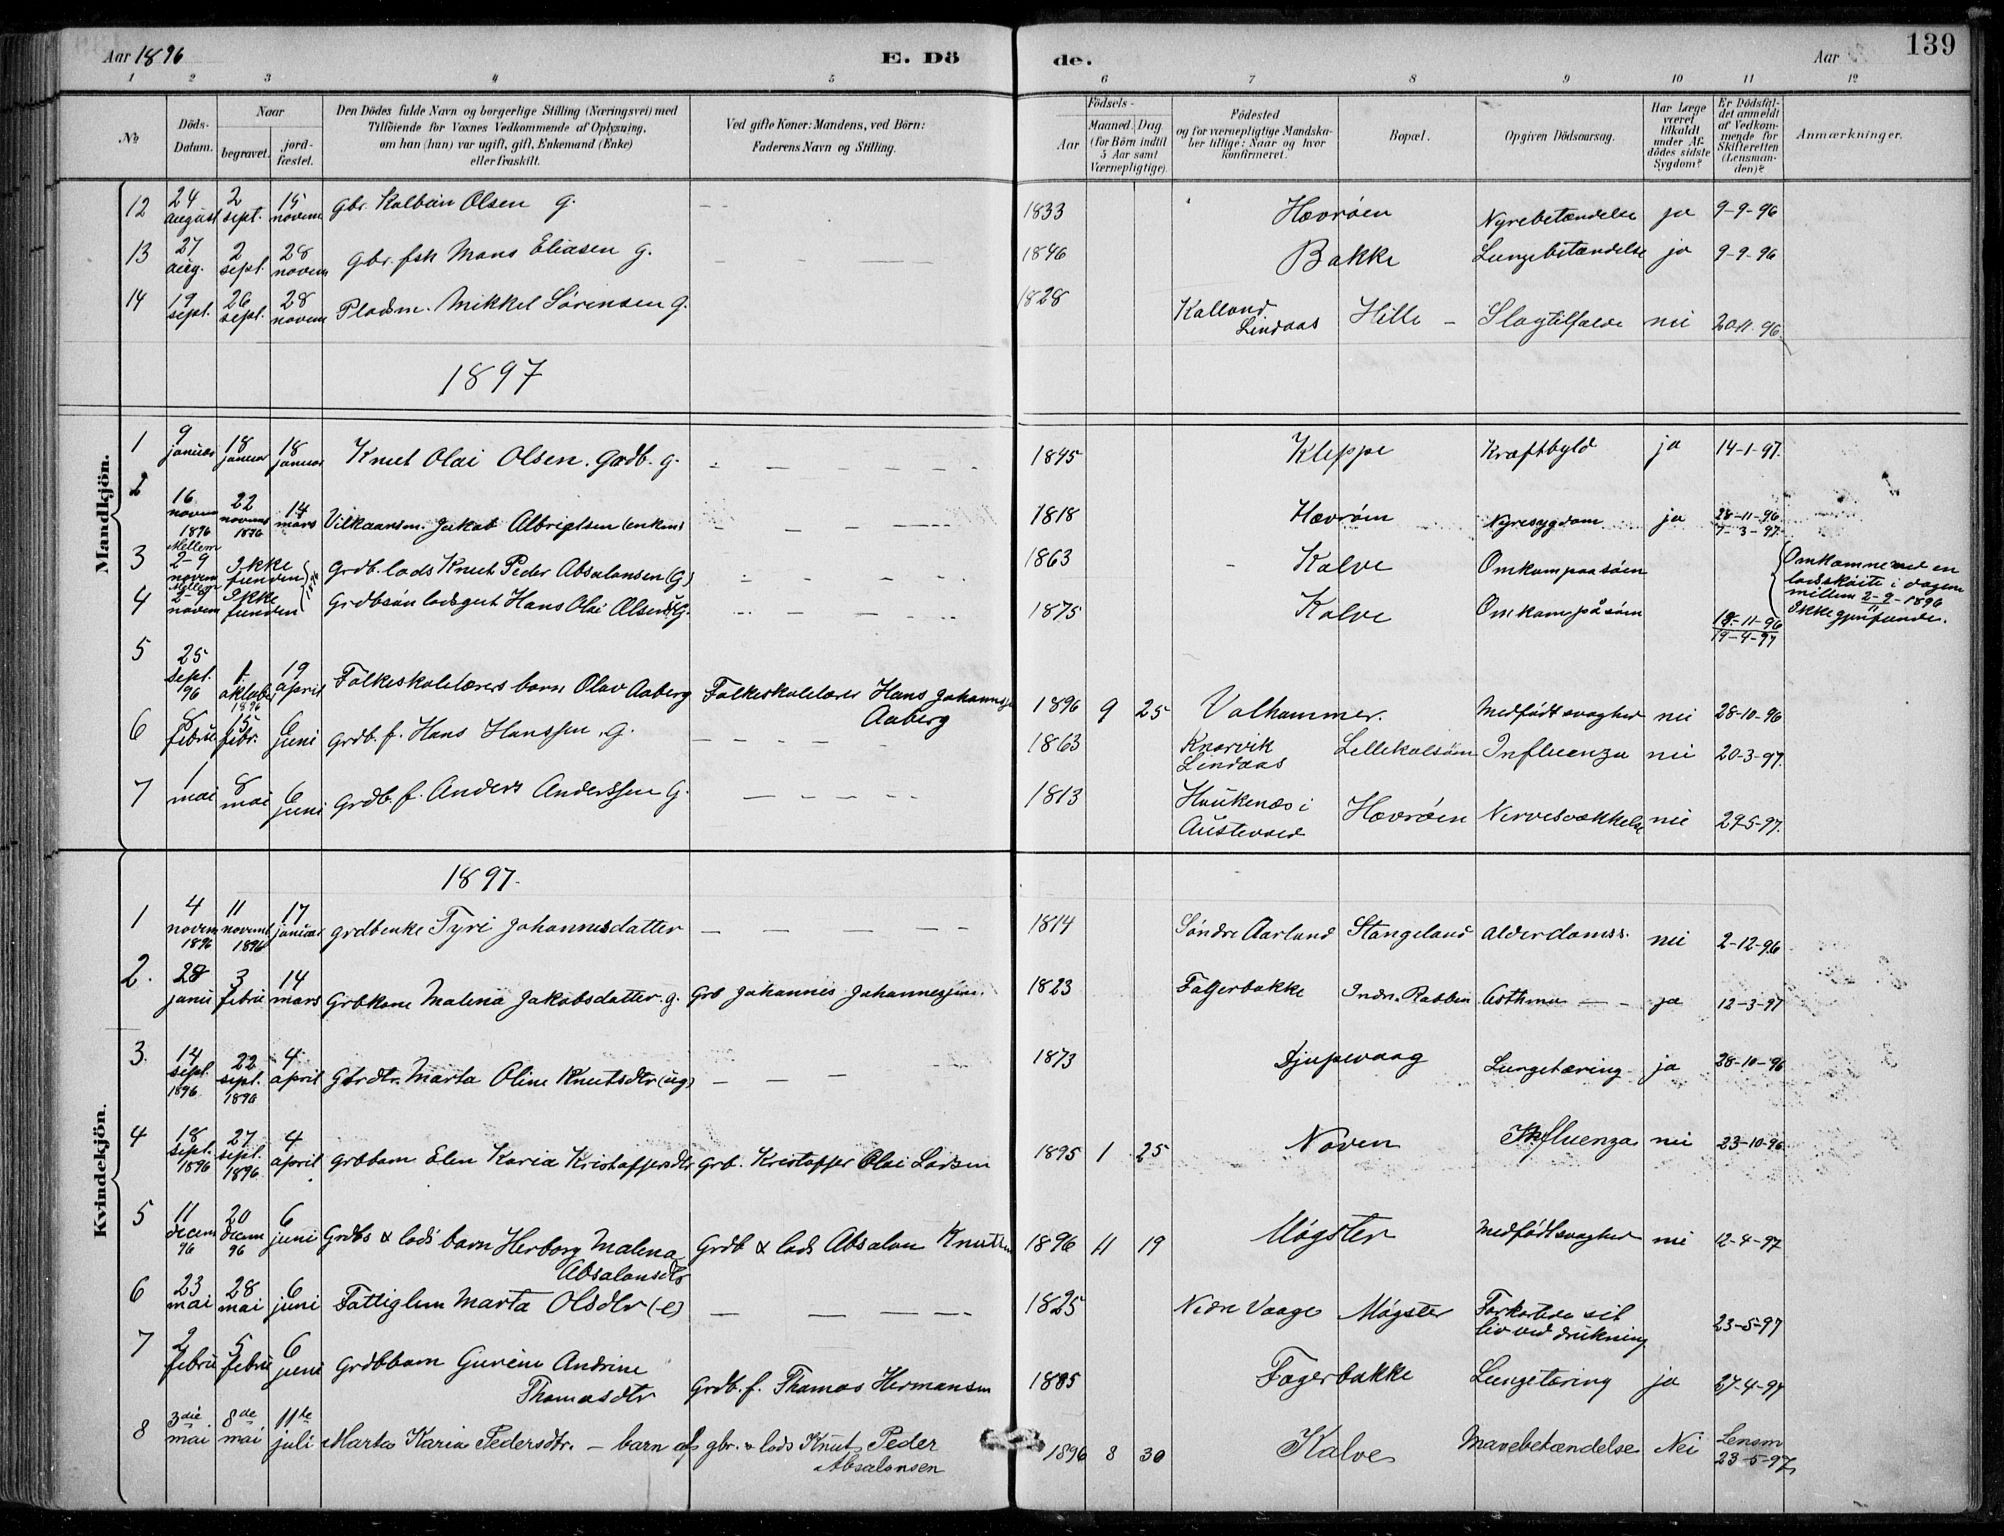 Aar 1896
E. Dö
de.
Aar
139
1 2 3 4 5 6 7 8 9 10 11 12
No
Döds-Datum.
Naar
begravet.
jordfæstet.
Den Dödes fulde Navn og borgerlige Stilling (Næringsvei) med
Tilföiende for Voxnes Vedkommende af Oplysning,
om han (hun) var ugift, gift, Enkemand (Enke)
eller fraskilt.
Ved gifte Koner: Mandens, ved Börn:
Faderens Navn og Stilling.
Födsels-
Aar
Maaned. Dag
(for Börn indtil
5 Aar samt
Værnepligtige)
Födested
og for værnepligtige Mandskaber
tillige: Naar og hvor
konfirmeret.
Bopæl.
Opgiven Dödsaarsag.
Har Læge
været
tilkaldt
under Afdödes
sidste
Sygdom?
Er Dödsfaldet
anmeldt
af Vedkommende
for
Skifteretten
(Lensmanden)?
Anmærkninger.
12 24 august 2 sept. 15 novem gbr. Kolbein Olsen g. 1833 Hevröen Nyrebetændelse ja 9-9-96
13 27 aug. 2 sept. 28 novem gbr. fsk Mons Eliasen g. 1846 Bakke Lungebetændelse ja 9-9-96
14 19 sept. 26 sept. 28 novem Pladsm. Mikkel Sörensen g. 1828 Kalland Lindaas Hille Slagtilfælde nei 20-11-96.
1897
Mandkjön.
1 9 januar 18 januar 18 januar Knut Olai Olsen. Grdb. g. 1845 Kleppe Kræftbyld ja 14-1-97.
2 16 novem 1896 22 novemb 1896 14 mars Vilkaarsm. Jakob Albrigtsen (enkem) 1818 Hevröen Nyresygdom ja 28-11-96 7-3-97.
3 Mellem 2-9 novem Ikke funden Grdb. lods Knut Peder Absalonsen (G) 1863 Kalve Omkom paa söen
4 Mellem 2-9 novem Ikke funden Grdbsön lodsgut Hans Olai Olsen G. 1875 Kalve Omkom på söen 18-11-96 19-4-97
{Omkomne med en
lodsköite i dagene
mellem 2-9-1896
11
Ikke gjenfunde.
5 25 sept. 96 1. oktober 1896 19 april Folkeskolelærers barn Olav Aaberg Folkeskolelærer Hans Johannesen Aaberg 1896 9 25 Valhammer. Medfödt svaghed nei 28-10-96
6 8 febru 15 febr. 6 juni Grdb. f. Hans Hanssen, g. 1863 Knarvik Lindaas Lillekalsöen Influenza nei 20-3-97.
7 1 mai 8 mai 6 juni Grdb. f. Anders Anderssen g. 1813 Haukenæs i Austevold Hevröen Nervesvækkelse nei 29-5-97.
1897.
Kvindekjön.
1 4 novem 1896 11 novemb 1896 17 januar grdbenke Tyri Johannesdatter 1814 Söndre Aarland Stangeland Alderdomss. nei 2-12-96
2. 28 janu 3 febru 14 mars Grbkone Malena Jakobsdatter g. Grb Johannes Johannessen. 1823 Fagerbakke Indr. Rabben Asthma ja 12-3-97
3. 14 sept. 1896 22 sept. 1896 4 april Gbrdtr. Marta Oline Knutsdtr (ug) 1873 Djupevaag Lungetæring ja 28-10-96
4 18 sept. 1896 27 sept. 1896 4 april Grbbarn Elen Karia Kristoffersdtr Grb. Kristoffer Olai Larsen 1895 1 25 Noven Influenza nei 23-10-96
5 11 decem 96 20 decem 96 6 juni Grdbs & lods barn Herborg Malena Absalonsdtr Grdb & lods Absalon Knutsen 1896 11 19 Mögster Medfödt svaghed nei 12-4-97
6 23 mai 28 mai 6 juni Fattiglem Marta Olsdtr (e) 1825 Nedre Vaage Mögster Forkortede sit liv ved drukning 23-5-97
7 2 febru 5 febru 6 juni Grdbbarn Gurine Andrine Thomasdtr Grdb. f. Thomas Hermansen 1885 Fagerbakke Lungetæring ja 27-4-97
8 3die mai 8de mai 11te juli Marta Karia Pedersdtr. - barn af gbr. & lods Knut Peder Absalonsen 1896 8 30 Kalve Mavebetændelse Nei Lensm 23-5-97